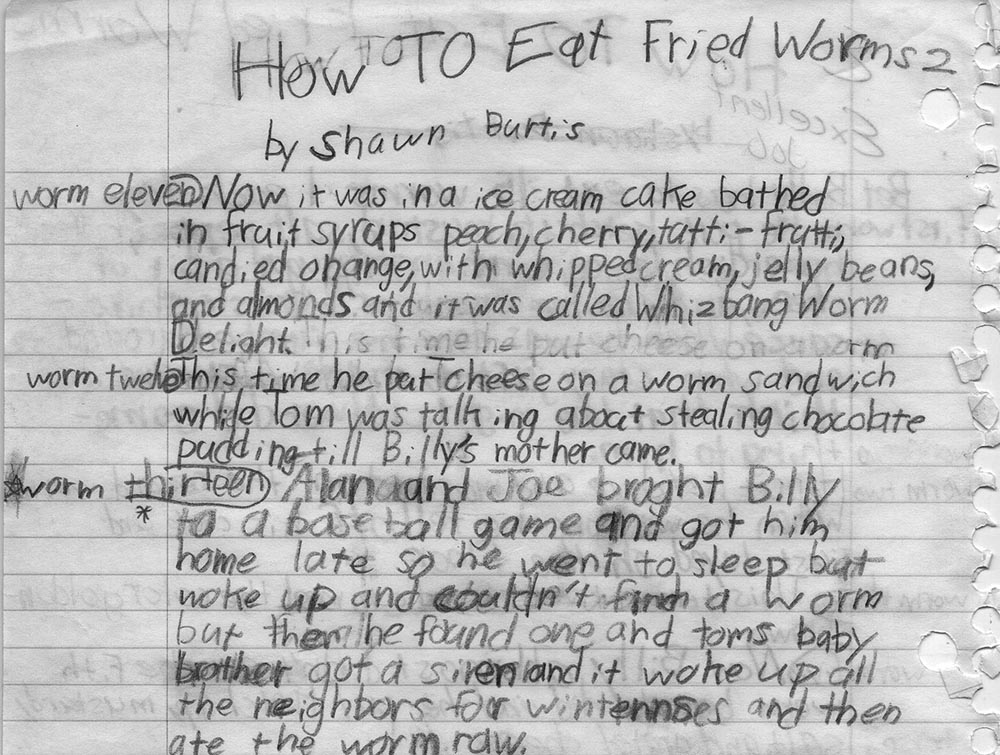 How TO TO Eat Fried Worms 2
by Shawn Burtis
worm eleven Now it was in a ice cream cake bathed
in fruit syrups peach, cherry, tutti-frutti,
candied ohange, with whipped cream, jelly beans,
and almonds and it was called Whizbang Worm
Delight. This time he put cheese on a worm
worm twelve This time he put cheese on a worm sandwich
while Tom was talking about stealing chocolate
pudding till Billy's mother came.
*worm thirteen Alan and Joe braght Billy
* to a base ball game and got him
home late so he went to sleep but
woke up and couldn't find a worm
but then he found one and toms baby
brother got a siren and it woke up all
the neighbors for wintennses and then
ate the worm raw.
Excellent
Job